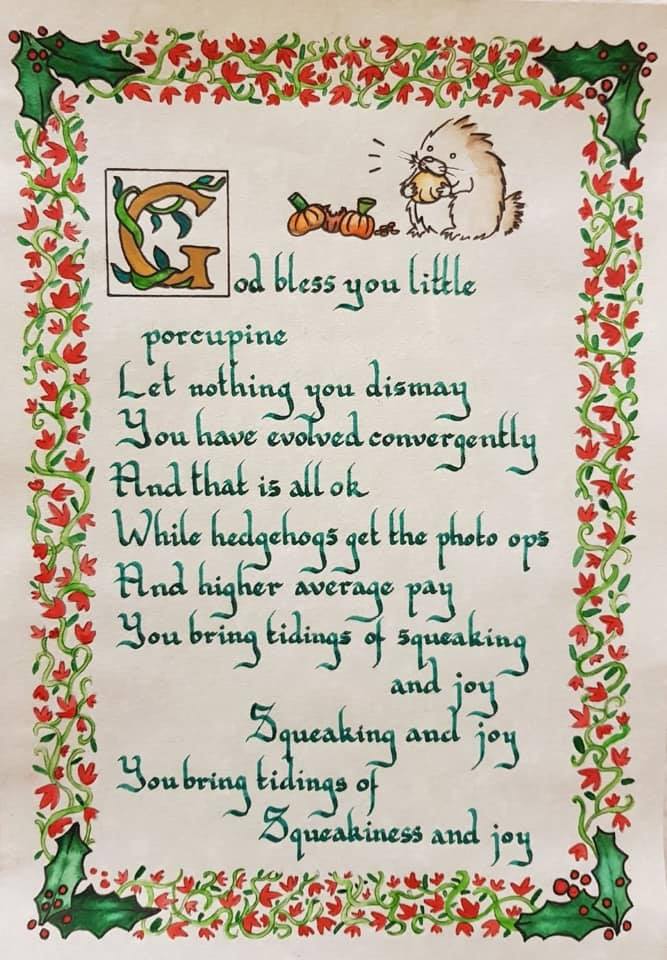 God bless you little
porcupine
Let nothing you dismay
You have evolved convergently
And that is all ok
While hedgehogs get the photo ops
And higher average pay
You bring tidings of squeaking
and joy
Squeaking and joy
You bring tidings of
Squeakiness and joy